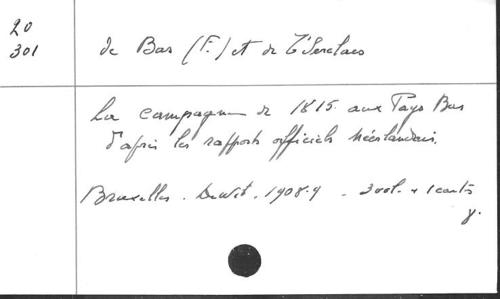 20
301
de Bas (F.) et de T'Serclaes
La campagne de 1815 aux Pays Bas
d'après les rapports officiels néerlandais.
Bruxelles. Dewit. 1908-9 - 3 vol. + 1 carte